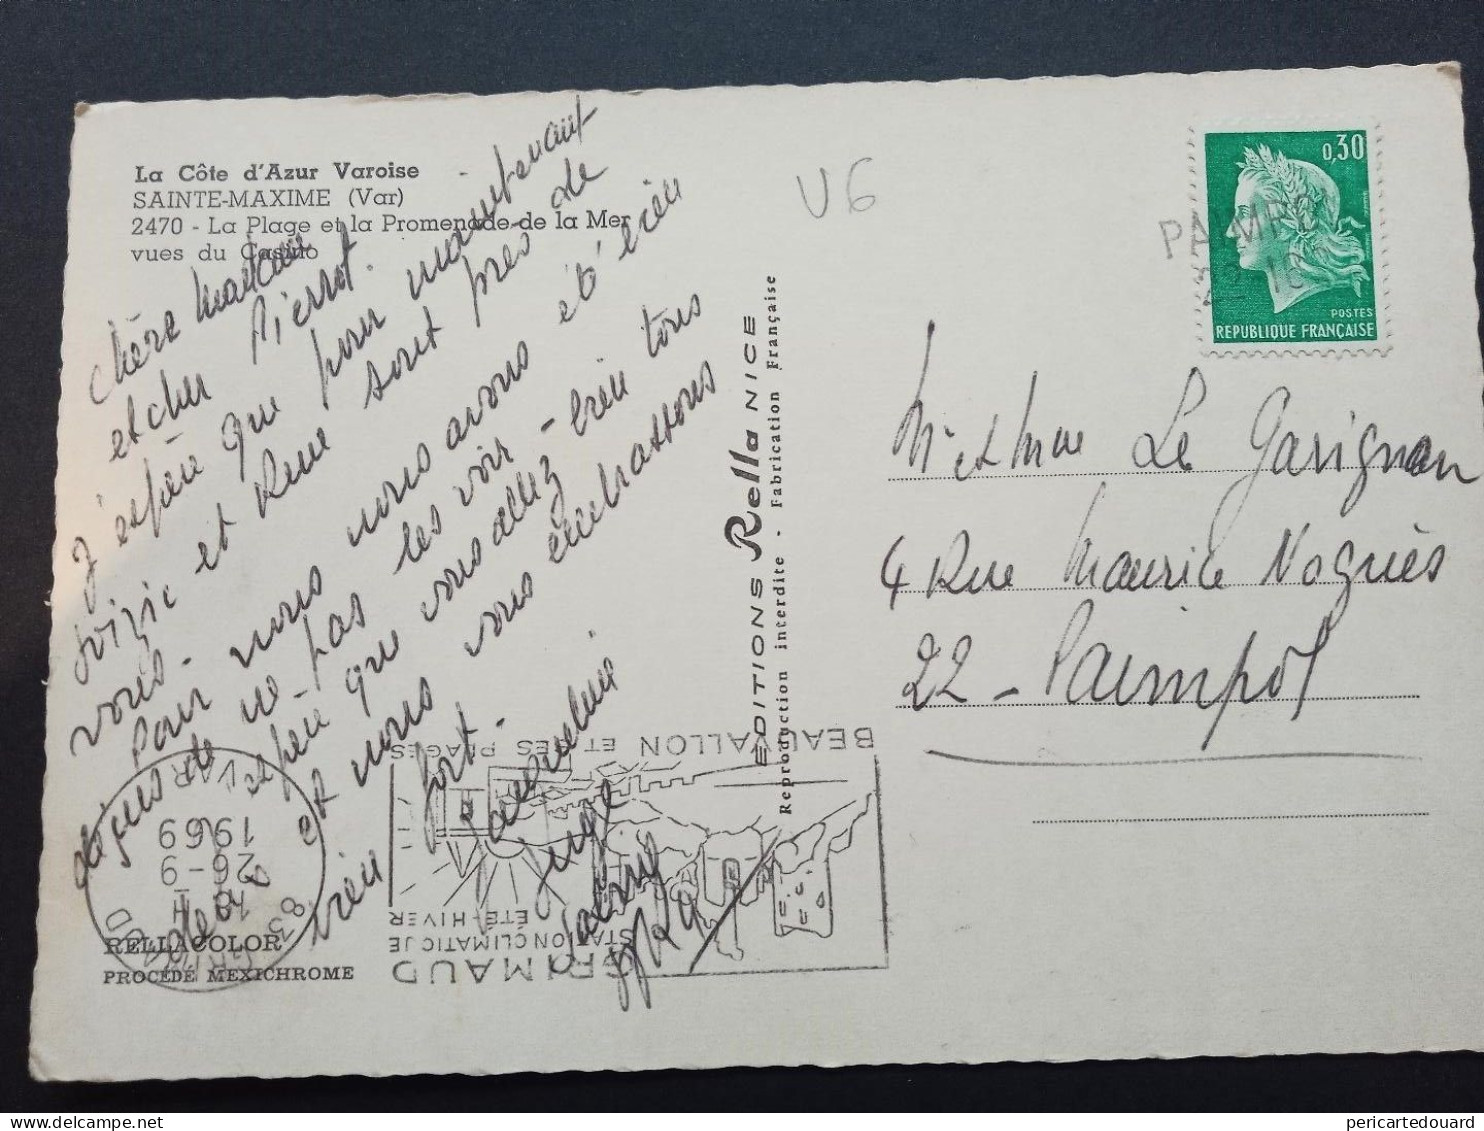 La Côte d'Azur Varoise
SAINTE-MAXIME (Var)
2470 - La Plage et la Promenade de la Mer
vues du Casino
chère
et cher Pierrot.
J'espère que pour maintenant
Soizic et sont près de
vous.
Pour nous nous avons été bien
déçus de ne pas les voir -
espère que vous allez bien tous
et nous vous embrassons
bien fort.
RELLACOLOR
PROCÉDÉ MEXICHROME
83 GRIMAUD
18 H
26-9
1969
VAR
GRIMAUD
STATION CLIMATIQUE
ÉTÉ-HIVER
BEAUVALLON ET SES PLAGES
EDITIONS Rella NICE
Reproduction interdite - Fabrication Française
U6
0,30
POSTES
REPUBLIQUE FRANÇAISE
M. et Mme Le Garignon
4 Rue Maurice Nogués
22 - Paimpol
pericartedouard